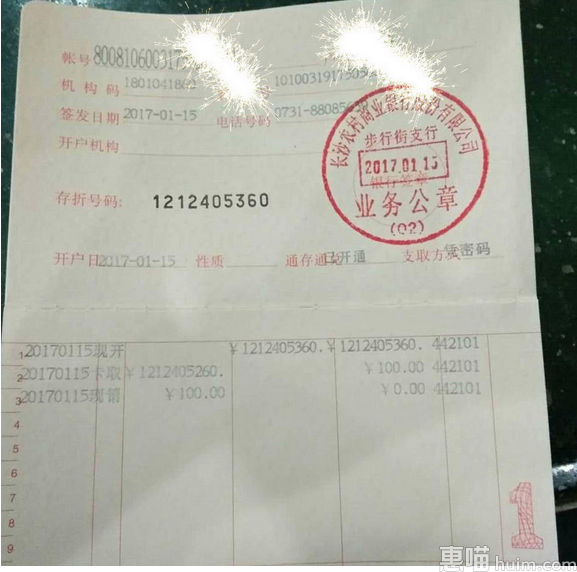 帐号 8008106003175
机构码 1801041860 1010031917505
签发日期 2017-01-15 电话号码 0731-88085
开户机构
长沙农村商业银行股份有限公司
步行街支行
2017.01.15
银行签章
业务公章
(02)
存折号码: 1212405360
开户日 2017-01-15 性质 通存通兑 已开通 支取方式 凭密码
1 20170115现开 ¥1212405360. ¥1212405360. 442101
2 20170115卡取 ¥1212405260. ¥100.00 442101
3 20170115现销 ¥100.00 ¥0.00 442101
4
5
6
7
8
9
1
惠喵 huim.com